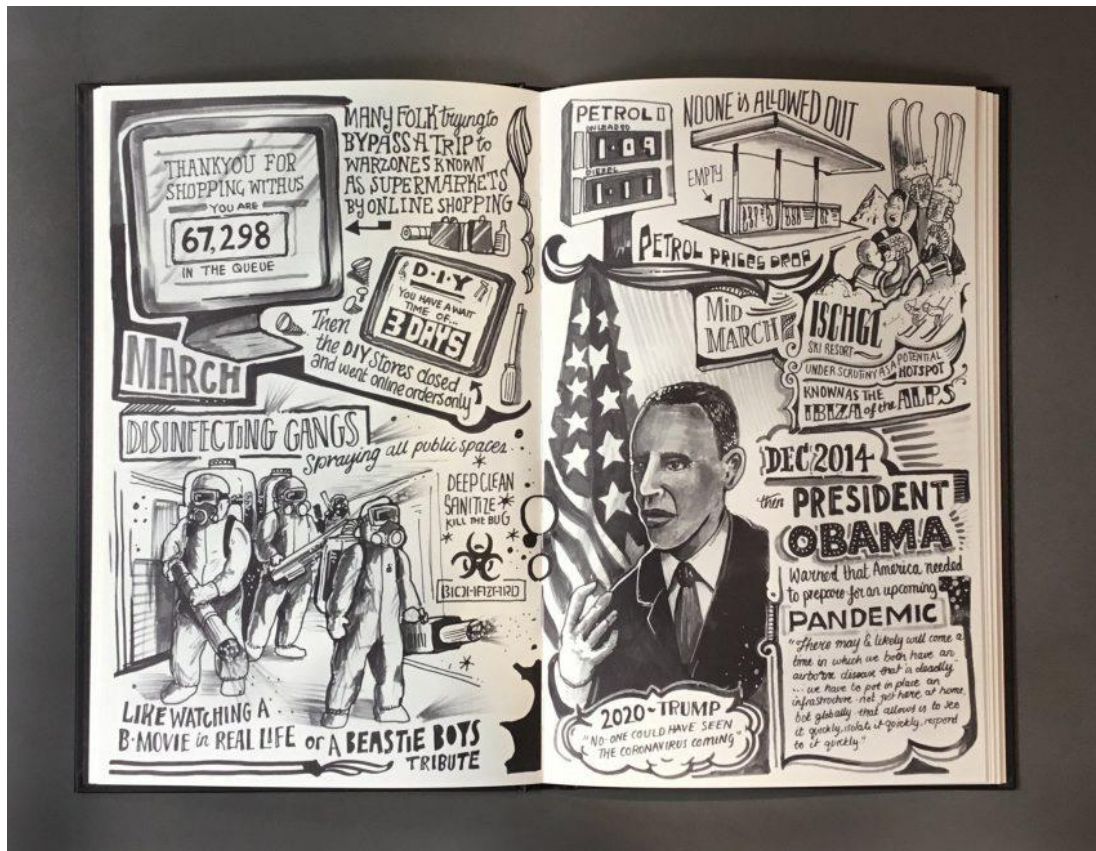 THANKYOU FOR
SHOPPING WITH US
YOU ARE
67,298
IN THE QUEUE
MANY FOLK trying to
BYPASS A TRIP to
WARZONES KNOWN
AS SUPERMARKETS
BY ONLINE SHOPPING
D·I·Y
YOU HAVE A WAIT
TIME OF...
3 DAYS
Then
the DIY Stores closed
and went online orders only
MARCH
DISINFECTING GANGS
Spraying all public spaces
DEEP CLEAN
SANITIZE
KILL THE BUG
LIKE WATCHING A
B·MOVIE in REAL LIFE or A BEASTIE BOYS
TRIBUTE
PETROL
UNLEADED
1.09
DIESEL
NOONE is ALLOWED OUT
EMPTY
PETROL PRICES DROP
MID
MARCH
ISCHGL
SKI RESORT
UNDER SCRUTINY AS A POTENTIAL
HOTSPOT
KNOWN AS THE
IBIZA of the ALPS
DEC 2014
then PRESIDENT
OBAMA
Warned that America needed
to prepare for an upcoming
PANDEMIC
"There may & likely will come a
time in which we both have an
airborne disease that is deadly
... we have to put in place an
infrastructure - not just here at home,
but globally - that allows us to see
it quickly, isolate it quickly, respond
to it quickly."
2020 - TRUMP
"NO-ONE COULD HAVE SEEN
THE CORONAVIRUS COMING"